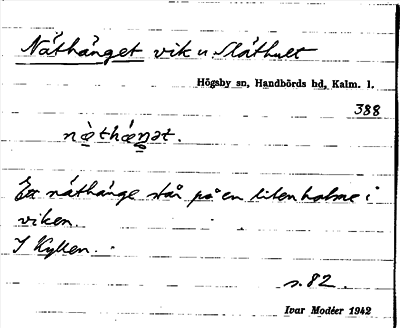 Näthänget vik u. Släthult
Högsby sn, Handbörds hd, Kalm. l.
388
næ̀thǽŋət.
Ett näthänge står på en liten holme i
viken.
I Kyllen.
s. 82.
Ivar Modéer 1942